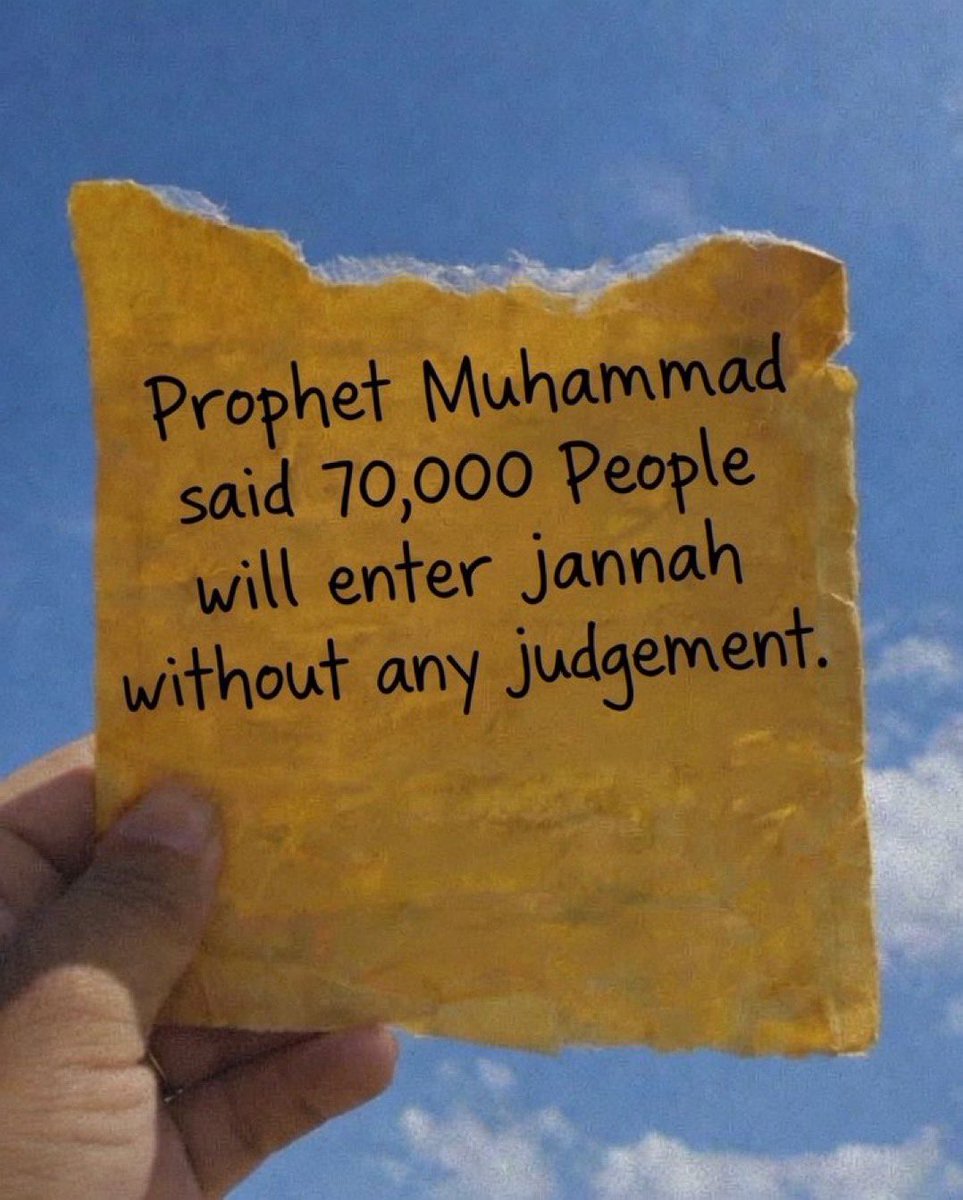 Prophet Muhammad
said 70,000 People
will enter jannah
without any judgement.